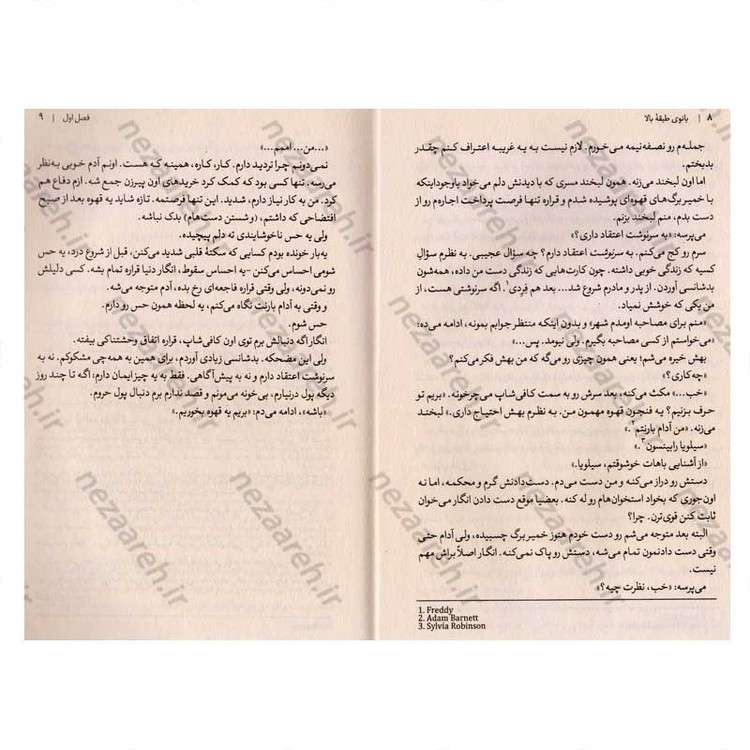 ۸ | بانوی طبقهٔ بالا
جمله‌م رو نصفه‌نیمه می‌خورم. لازم نیست به یه غریبه اعتراف کنم چقدر
بدبختم.
اما اون لبخند می‌زنه. همون لبخند مسری که با دیدنش دلم می‌خواد باوجوداینکه
با خمیربرگ‌های قهوه‌ای پوشیده شدم و قراره تنها فرصت پرداخت اجاره‌م رو از
دست بدم، منم لبخند بزنم.
می‌پرسه: «به سرنوشت اعتقاد داری؟»
سرم رو کج می‌کنم. به سرنوشت اعتقاد دارم؟ چه سؤال عجیبی. به نظرم سؤالِ
کسیه که زندگی خوبی داشته. چون کارت‌هایی که زندگی دست من داده، همه‌شون
بدشانسی آوردن. از پدر و مادرم شروع شد... بعد هم فِرِدی¹. اگه سرنوشتی هست، از
من یکی که خوشش نمیاد.
«منم برای مصاحبه اومدم شهر» و بدون اینکه منتظر جوابم بمونه، ادامه می‌ده:
«می‌خواستم از کسی مصاحبه بگیرم. ولی نیومد. پس...»
بهش خیره می‌شم؛ یعنی همون چیزی رو می‌گه که من بهش فکر می‌کنم؟
«چه‌کاری؟»
«خب...» مکث می‌کنه، بعد سرش رو به سمت کافی‌شاپ می‌چرخونه. «بریم تو
حرف بزنیم؟ یه فنجون قهوه مهمون من. به نظرم بهش احتیاج داری.» لبخند
می‌زنه. «من آدام بارنتم².»
«سیلویا رابینسون³.»
«از آشنایی باهات خوشوقتم، سیلویا.»
دستش رو دراز می‌کنه و من می‌دم. دست‌دادنش گرم و محکمه، اما نه
اون‌جوری که بخواد استخوان‌هام رو له کنه. بعضیا موقع دست دادن انگار می‌خوان
ثابت کنن قوی‌ترن. چرا؟
البته بعد متوجه می‌شم رو دست خودم هنوز خمیربرگ چسبیده، ولی آدام حتی
وقتی دست دادنمون تمام می‌شه، دستش رو پاک نمی‌کنه. انگار اصلاً براش مهم
نیست.
می‌پرسه: «خب، نظرت چیه؟»
1. Freddy
2. Adam Barnett
3. Sylvia Robinson
فصل اول | ۹
«...من... اممم...»
نمی‌دونم چرا تردید دارم. کار، کاره، همینه که هست. اونم آدم خوبی به‌نظر
می‌رسه. تنها کسی بود که کمک کرد خریدهای اون پیرزن جمع شه. ازم دفاع هم
کرد. من به کار نیاز دارم، شدید. این تنها فرصتمه. تازه شاید یه قهوه بعد از صبح
افتضاحی که داشتم، (و شستن دست‌هام) بدک نباشه.
ولی یه حس ناخوشایندی ته دلم پیچیده.
یه‌بار خونده بودم کسایی که سکتهٔ قلبی شدید می‌کنن، قبل از شروع درد، یه حس
شومی احساس می‌کنن -یه احساس سقوط، انگار دنیا قراره تمام بشه. کسی دلیلش
رو نمی‌دونه، ولی وقتی قراره فاجعه‌ای رخ بده، آدم متوجه می‌شه.
و وقتی به آدام بارنت نگاه می‌کنم، یه لحظه همون حس رو دارم.
حس شوم.
انگار اگه دنبالش برم توی اون کافی‌شاپ، قراره اتفاق وحشتناکی بیفته.
ولی این مضحکه. بدشانسی زیادی آوردم، برای همین به همه‌چی مشکوکم. نه به
سرنوشت اعتقاد دارم و نه به پیش‌آگاهی. فقط به یه چیز ایمان دارم: اگه تا چند روز
دیگه پول درنیارم، بی خونه می‌مونم و قصد ندارم برم دنبال پول حروم.
«باشه»، ادامه می‌دم: «بریم یه قهوه بخوریم.»
nezaareh.ir
nezaareh.ir
nezaareh.ir
nezaareh.ir
nezaareh.ir
nezaareh.ir
nezaareh.ir
nezaareh.ir
nezaareh.ir